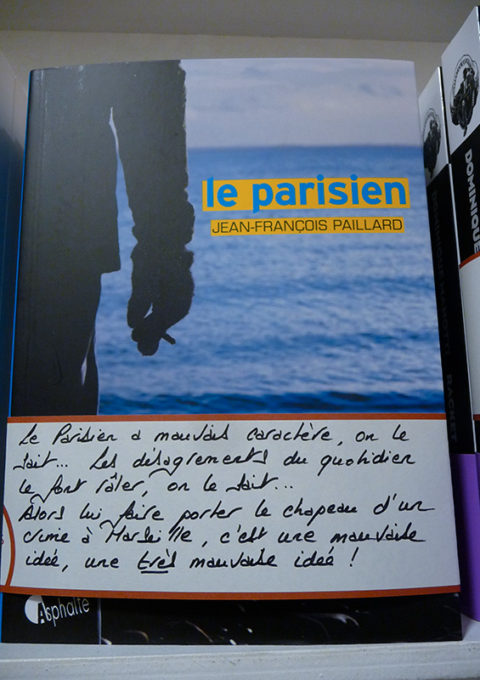 le parisien
JEAN-FRANÇOIS PAILLARD
Le Parisien a mauvais caractère, on le
sait... Les désagréments du quotidien
le font râler, on le sait...
Alors lui faire porter le chapeau d'un
crime à Marseille, c'est une mauvaise
idée, une très mauvaise idée !
Asphalte
DOMINIQUE